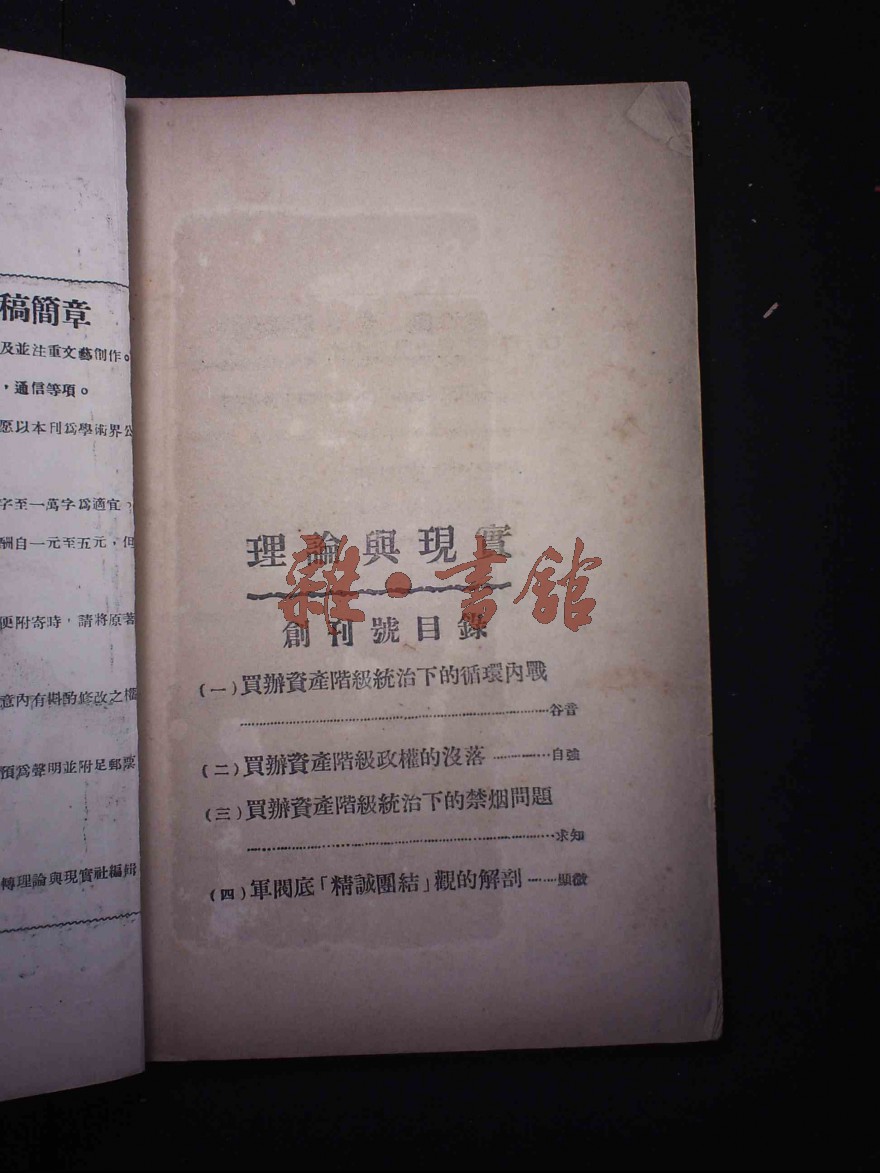 稿簡章
及並注重文藝創作。
，通信等項。
愿以本刊爲學術界公
字至一萬字爲適宜。
酬自一元至五元，但
便附寄時，請將原著
意內有斟酌修改之權
預爲聲明並附足郵票
轉理論與現實社編輯
理論與現實
雜·書館
創刊號目錄
(一)買辦資產階級統治下的循環內戰
谷音
(二)買辦資產階級政權的沒落…………自強
(三)買辦資產階級統治下的禁烟問題
求知
(四)軍閥底「精誠團結」觀的解剖……顯微